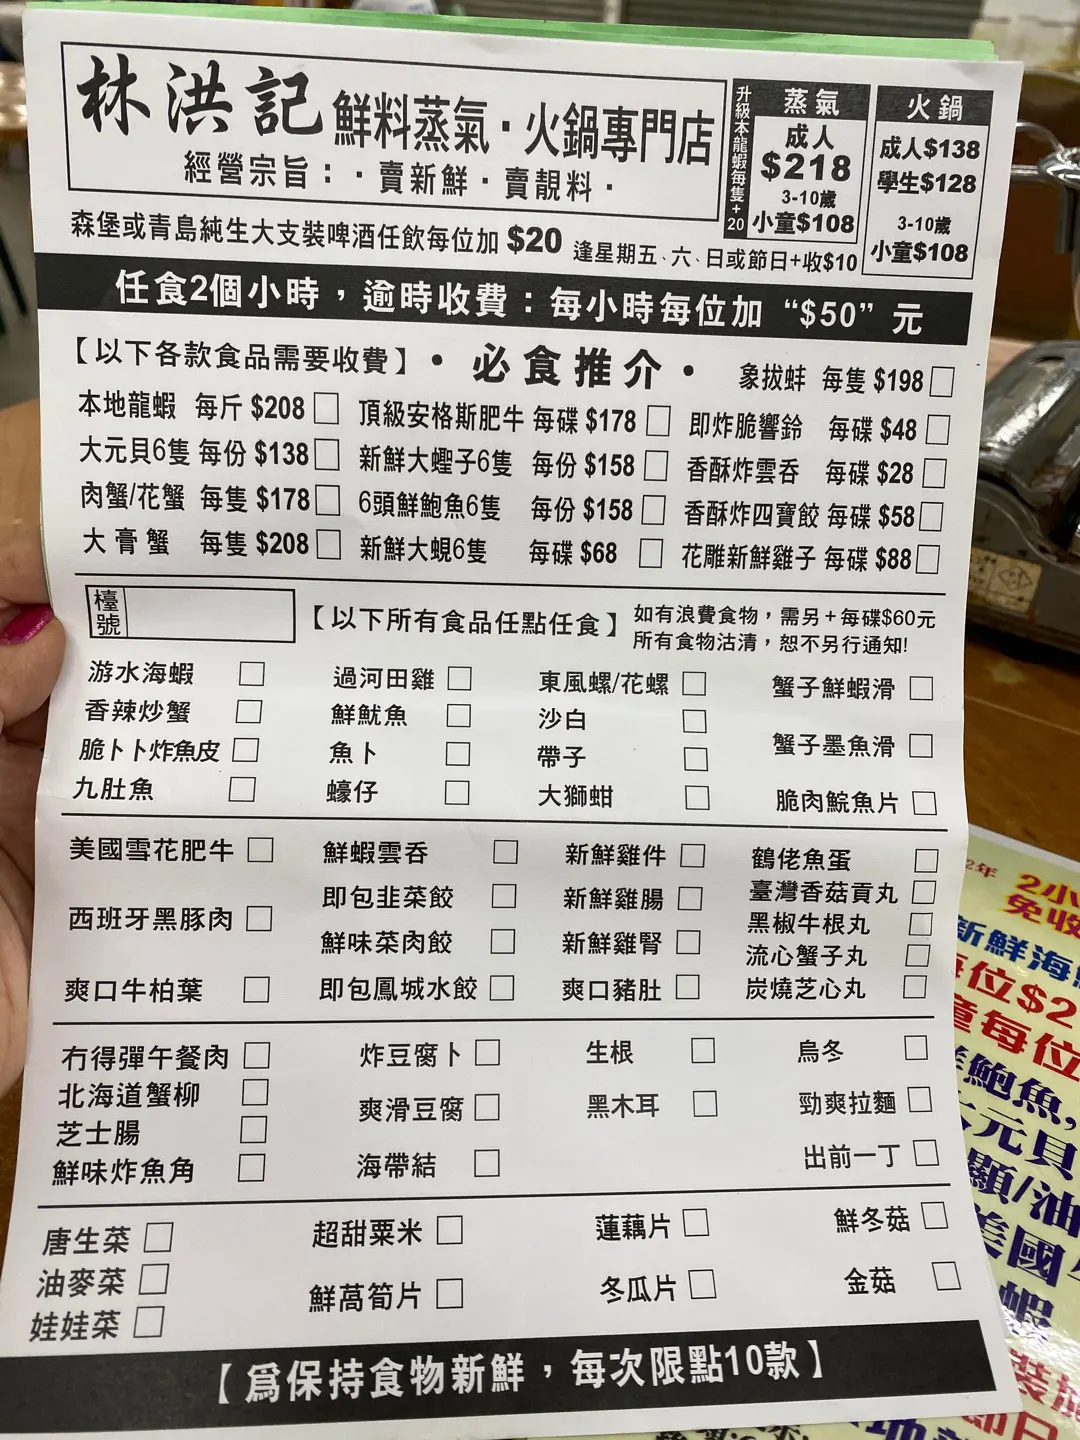 林洪記 鮮料蒸氣·火鍋專門店
經營宗旨：·賣新鮮·賣靚料·
升級本龍蝦每隻+20
蒸氣
成人
$218
3-10歲
小童$108
火鍋
成人$138
學生$128
3-10歲
小童$108
森堡或青島純生大支裝啤酒任飲每位加 $20 逢星期五、六、日或節日+收$10
任食2個小時，逾時收費：每小時每位加 “$50” 元
【以下各款食品需要收費】·必食推介· 象拔蚌 每隻 $198
本地龍蝦 每斤 $208 頂級安格斯肥牛 每碟 $178 即炸脆響鈴 每碟 $48
大元貝6隻 每份 $138 新鮮大蟶子6隻 每份 $158 香酥炸雲吞 每碟 $28
肉蟹/花蟹 每隻 $178 6頭鮮鮑魚6隻 每份 $158 香酥炸四寶餃 每碟 $58
大膏蟹 每隻 $208 新鮮大蜆6隻 每碟 $68 花雕新鮮雞子 每碟 $88
檯號 【以下所有食品任點任食】 如有浪費食物，需另+每碟$60元
所有食物沽清，恕不另行通知!
游水海蝦 過河田雞 東風螺/花螺 蟹子鮮蝦滑
香辣炒蟹 鮮魷魚 沙白
脆卜卜炸魚皮 魚卜 帶子 蟹子墨魚滑
九肚魚 蠔仔 大獅蚶 脆肉鯇魚片
美國雪花肥牛 鮮蝦雲吞 新鮮雞件 鶴佬魚蛋
即包韭菜餃 新鮮雞腸 臺灣香菇貢丸
西班牙黑豚肉 黑椒牛根丸
鮮味菜肉餃 新鮮雞腎 流心蟹子丸
爽口牛柏葉 即包鳳城水餃 爽口豬肚 炭燒芝心丸
冇得彈午餐肉 炸豆腐卜 生根 烏冬
北海道蟹柳 爽滑豆腐 黑木耳 勁爽拉麵
芝士腸
鮮味炸魚角 海帶結 出前一丁
唐生菜 超甜粟米 蓮藕片 鮮冬菇
油麥菜 鮮萵筍片 冬瓜片 金菇
娃娃菜
【爲保持食物新鮮，每次限點10款】
2年
2小
免收
新鮮海
位$2
童每位
鮑魚,
元貝
顯/油
美國
蝦
裝
節日